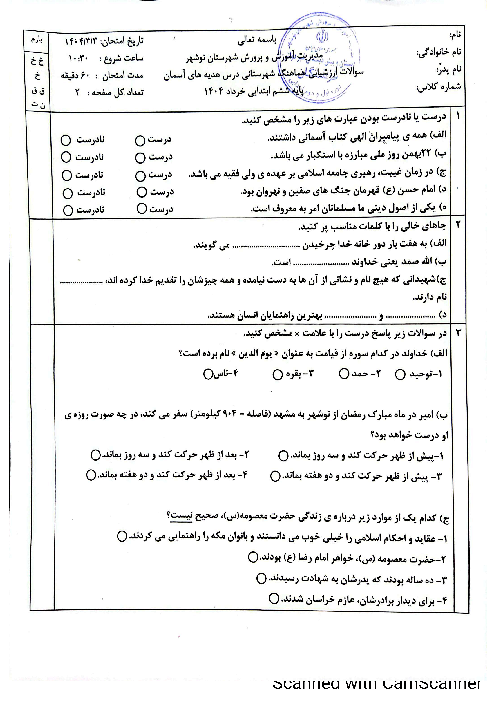 نام:
نام خانوادگی:
نام پدر:
شماره کلاس:
باسمه تعالی
مدیریت آموزش و پرورش شهرستان نوشهر
سوالات ارزشیابی هماهنگ شهرستانی درس هدیه های آسمان
پایه ششم ابتدایی خرداد ۱۴۰۴
تاریخ امتحان: ۱۴۰۴/۳/۳
ساعت شروع : ۱۰:۳۰
مدت امتحان : ۶۰ دقیقه
تعداد کل صفحه : ۲
بارم
خ خ
خ
ق ق
ن ت
۱ درست یا نادرست بودن عبارت های زیر را مشخص کنید.
الف) همه ی پیامبران الهی کتاب آسمانی داشتند. درست نادرست
ب) ۲۲بهمن روز ملی مبارزه با استکبار می باشد. درست نادرست
ج) در زمان غیبت، رهبری جامعه اسلامی بر عهده ی ولی فقیه می باشد. درست نادرست
د) امام حسن (ع) قهرمان جنگ های صفین و نهروان بود. درست نادرست
ه) یکی از اصول دینی ما مسلمانان امر به معروف است. درست نادرست
۲ جاهای خالی را با کلمات مناسب پر کنید.
الف) به هفت بار دور خانه خدا چرخیدن ........................... می گویند.
ب) الله صمد یعنی خداوند ...................... است.
ج)شهیدانی که هیچ نام و نشانی از آن ها به دست نیامده و همه چیزشان را تقدیم خدا کرده اند، .................
نام دارند.
د) .................... و .................... بهترین راهنمایان انسان هستند.
۳ در سوالات زیر پاسخ درست را با علامت × مشخص کنید.
الف) خداوند در کدام سوره از قیامت به عنوان « یوم الدین » نام برده است؟
۱-توحید ۲- حمد ۳- بقره ۴-ناس
ب) امیر در ماه مبارک رمضان از نوشهر به مشهد (فاصله - ۹۰۴ کیلومتر) سفر می کند، در چه صورت روزه ی
او درست خواهد بود؟
۱-پیش از ظهر حرکت کند و سه روز بماند. ۲- بعد از ظهر حرکت کند و سه روز بماند.
۳- پیش از ظهر حرکت کند و دو هفته بماند. ۴- بعد از ظهر حرکت کند و دو هفته بماند.
ج) کدام یک از موارد زیر درباره ی زندگی حضرت معصومه(س)، صحیح نیست؟
۱- عقاید و احکام اسلامی را خیلی خوب می دانستند و بانوان مکه را راهنمایی می کردند.
۲-حضرت معصومه (س)، خواهر امام رضا (ع) بودند.
۳- ده ساله بودند که پدرشان به شهادت رسیدند.
۴- برای دیدار برادرشان، عازم خراسان شدند.
Scanned with CamScanner